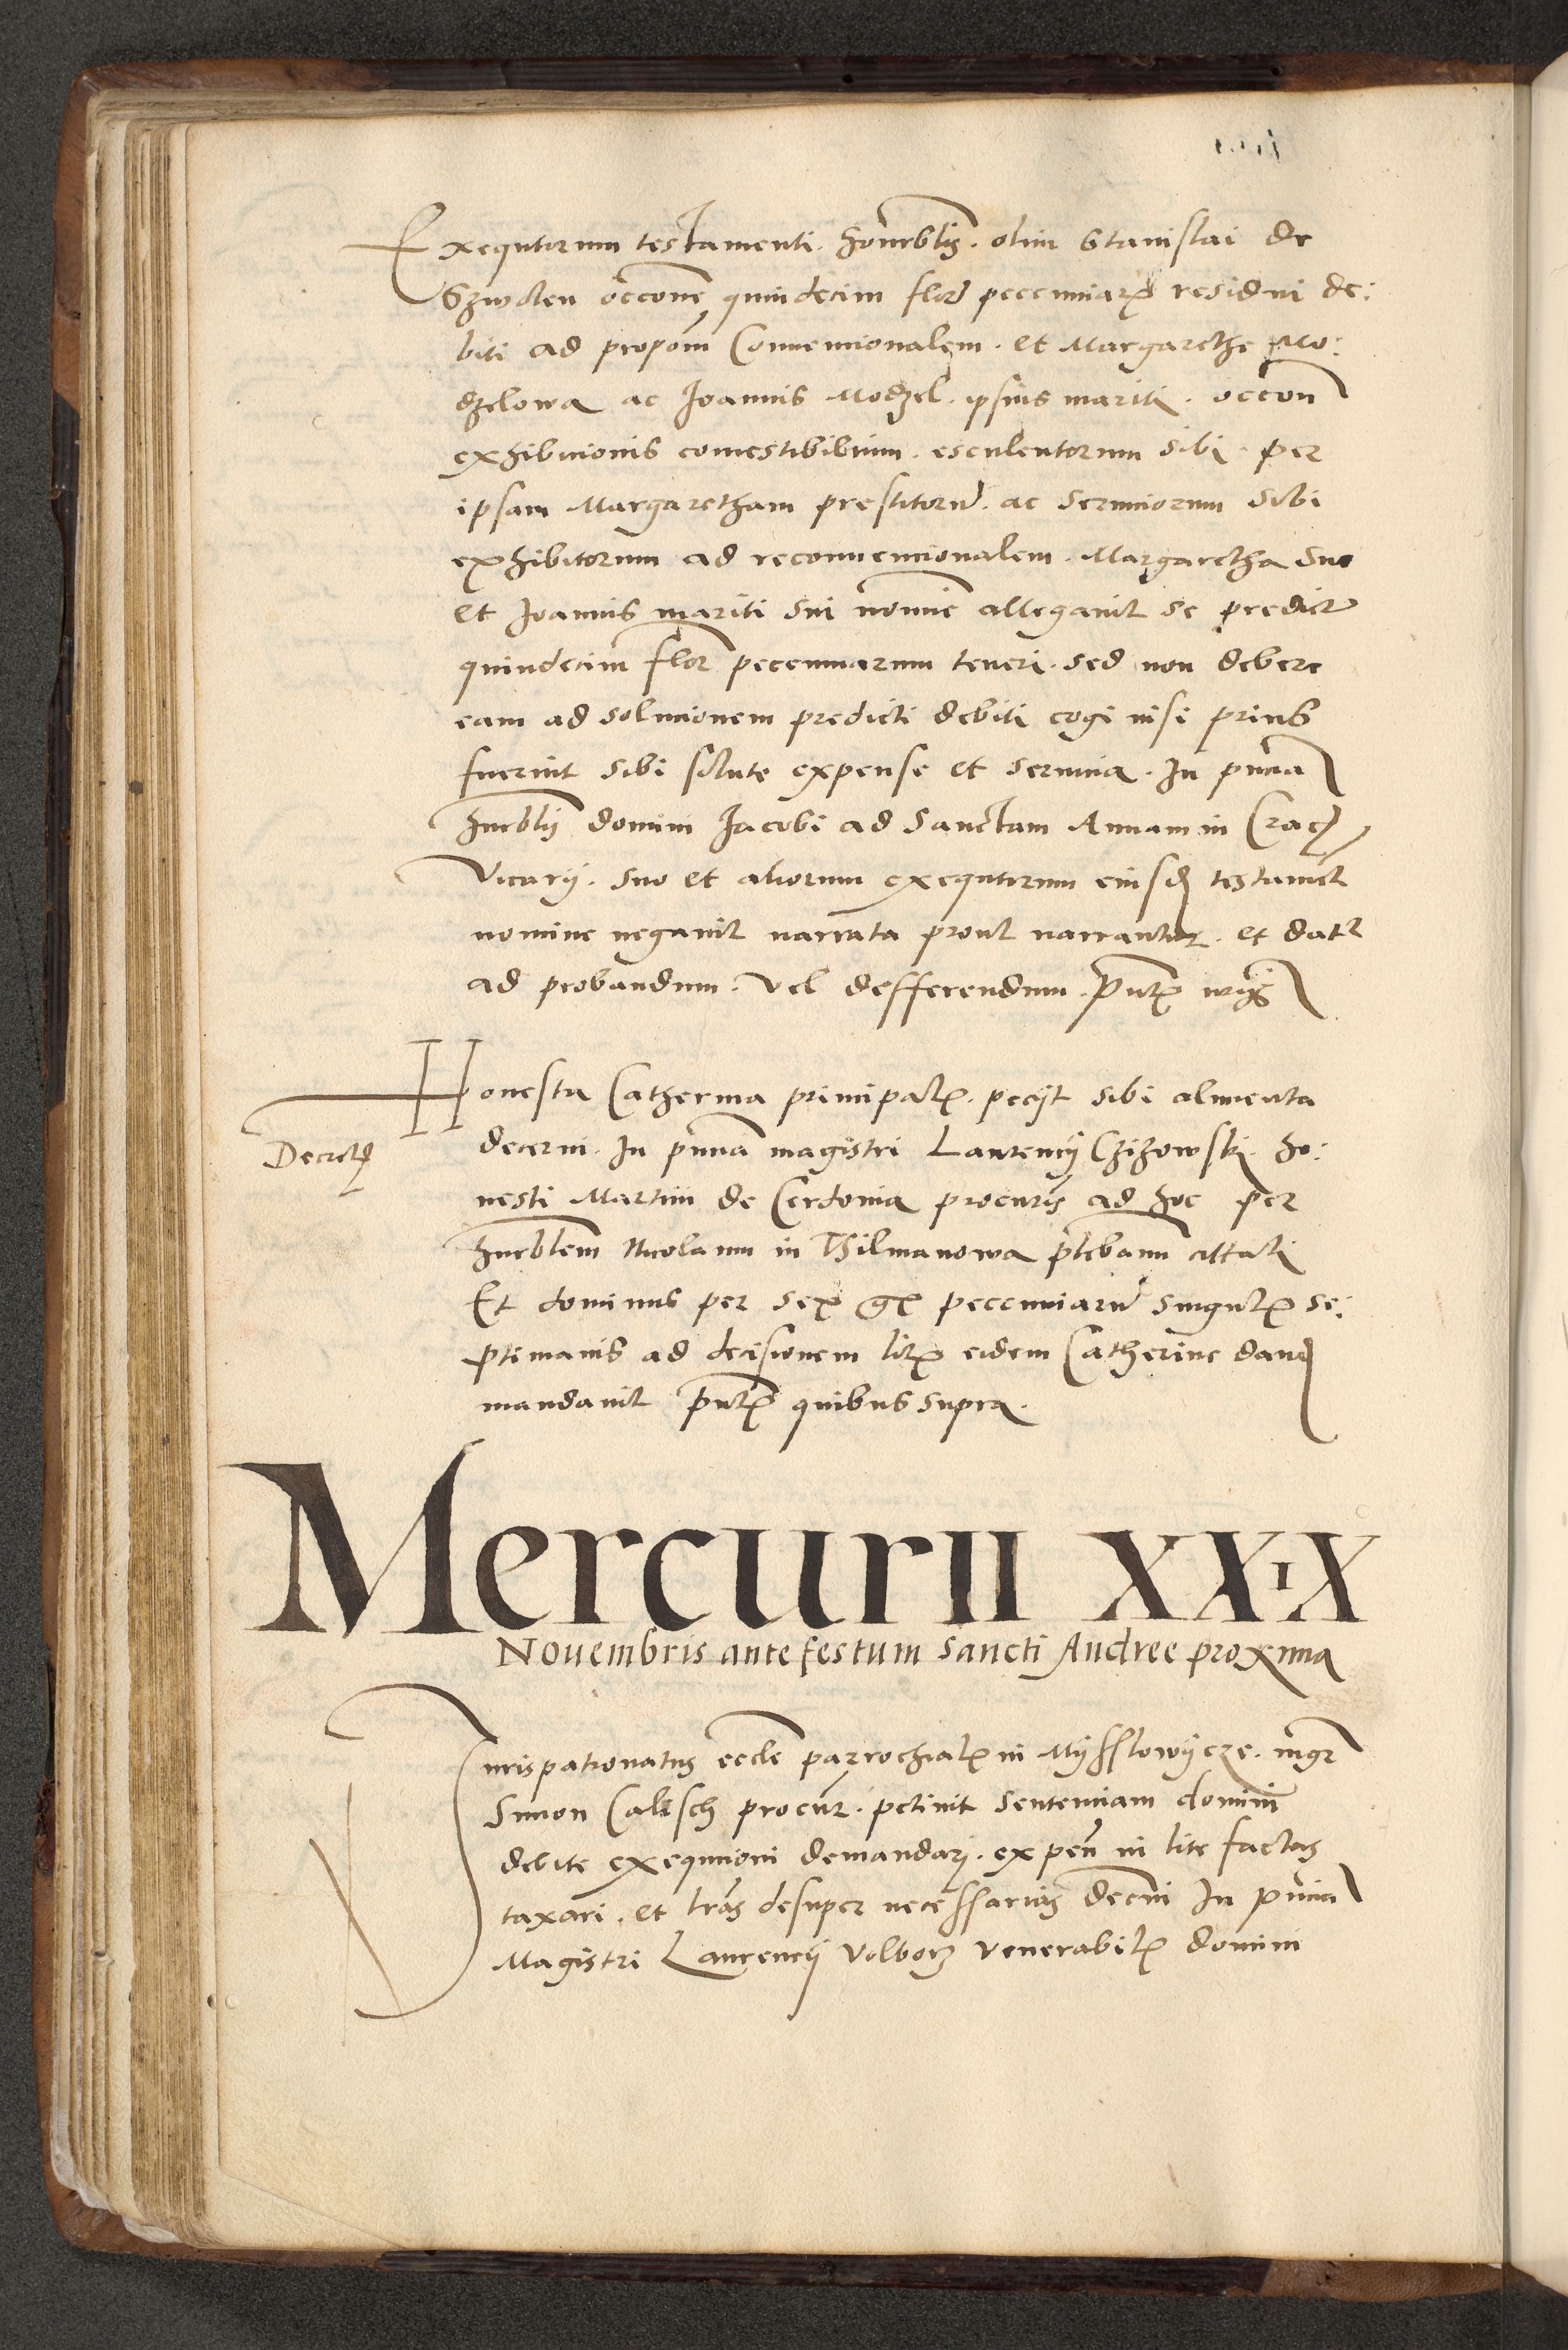 Exequtorum testamenti. honrblis. olim Stanislai de
Szwolen occone quindecim flor pecenniarum residui de:
biti ad propom Conuencionalem. et Margarethe Mo:
dzelowa ac Joannis Modzel. ipsius mariti. occon
exhibicionis comestibibium. esculentorum sibi per
ipsam Margaretham prestitorum. ac seruiciorum sibi
exhibitorum ad reconuencionalem. Margaretha suo
et Joannis mariti sui nomine allegauit se predict
quindecim flor pecenniarum teneri. sed non debere
eam ad solucionem predicti debiti cogi nisi prius
fuerint sibi solute expense et seruicia. In pncia
hnrblis domini Jacobi ad Sanctam Annam in Crac
Vicarij. suo et aliorum exequtorum eiusd testament
nomine negauit narrata prout narrantur. et datr
ad probandum. vel defferendum. Pntibus
Honesta Catherina principalis. peciit sibi alimenta
Decretum
decerni. In pncia magistri Laurencij Czizowski. ho:
nesti Martini de Cerdonia procuris ad hoc per
hnrblem Nicolaum in Tilmanowa plebanum cittati
Et dominus per sex gr pecenniarum singulis se:
ptimanis ad decisionem litis eidem Catherine dand
mandauit pntibus quibus supra.
Mercurii XXIX
Nouembris ante festum sancti Andree proxima
Jurispatronatus eccle parrochialis in Mysslowycze. mgr
Simon Calisch procur. petiuit sentenciam domini
debite exequcioni demandari. expen in lite factas
taxari. et lras desuper necessarias decni In pncia
Magistri Laurencij Volborz venerabilis domini